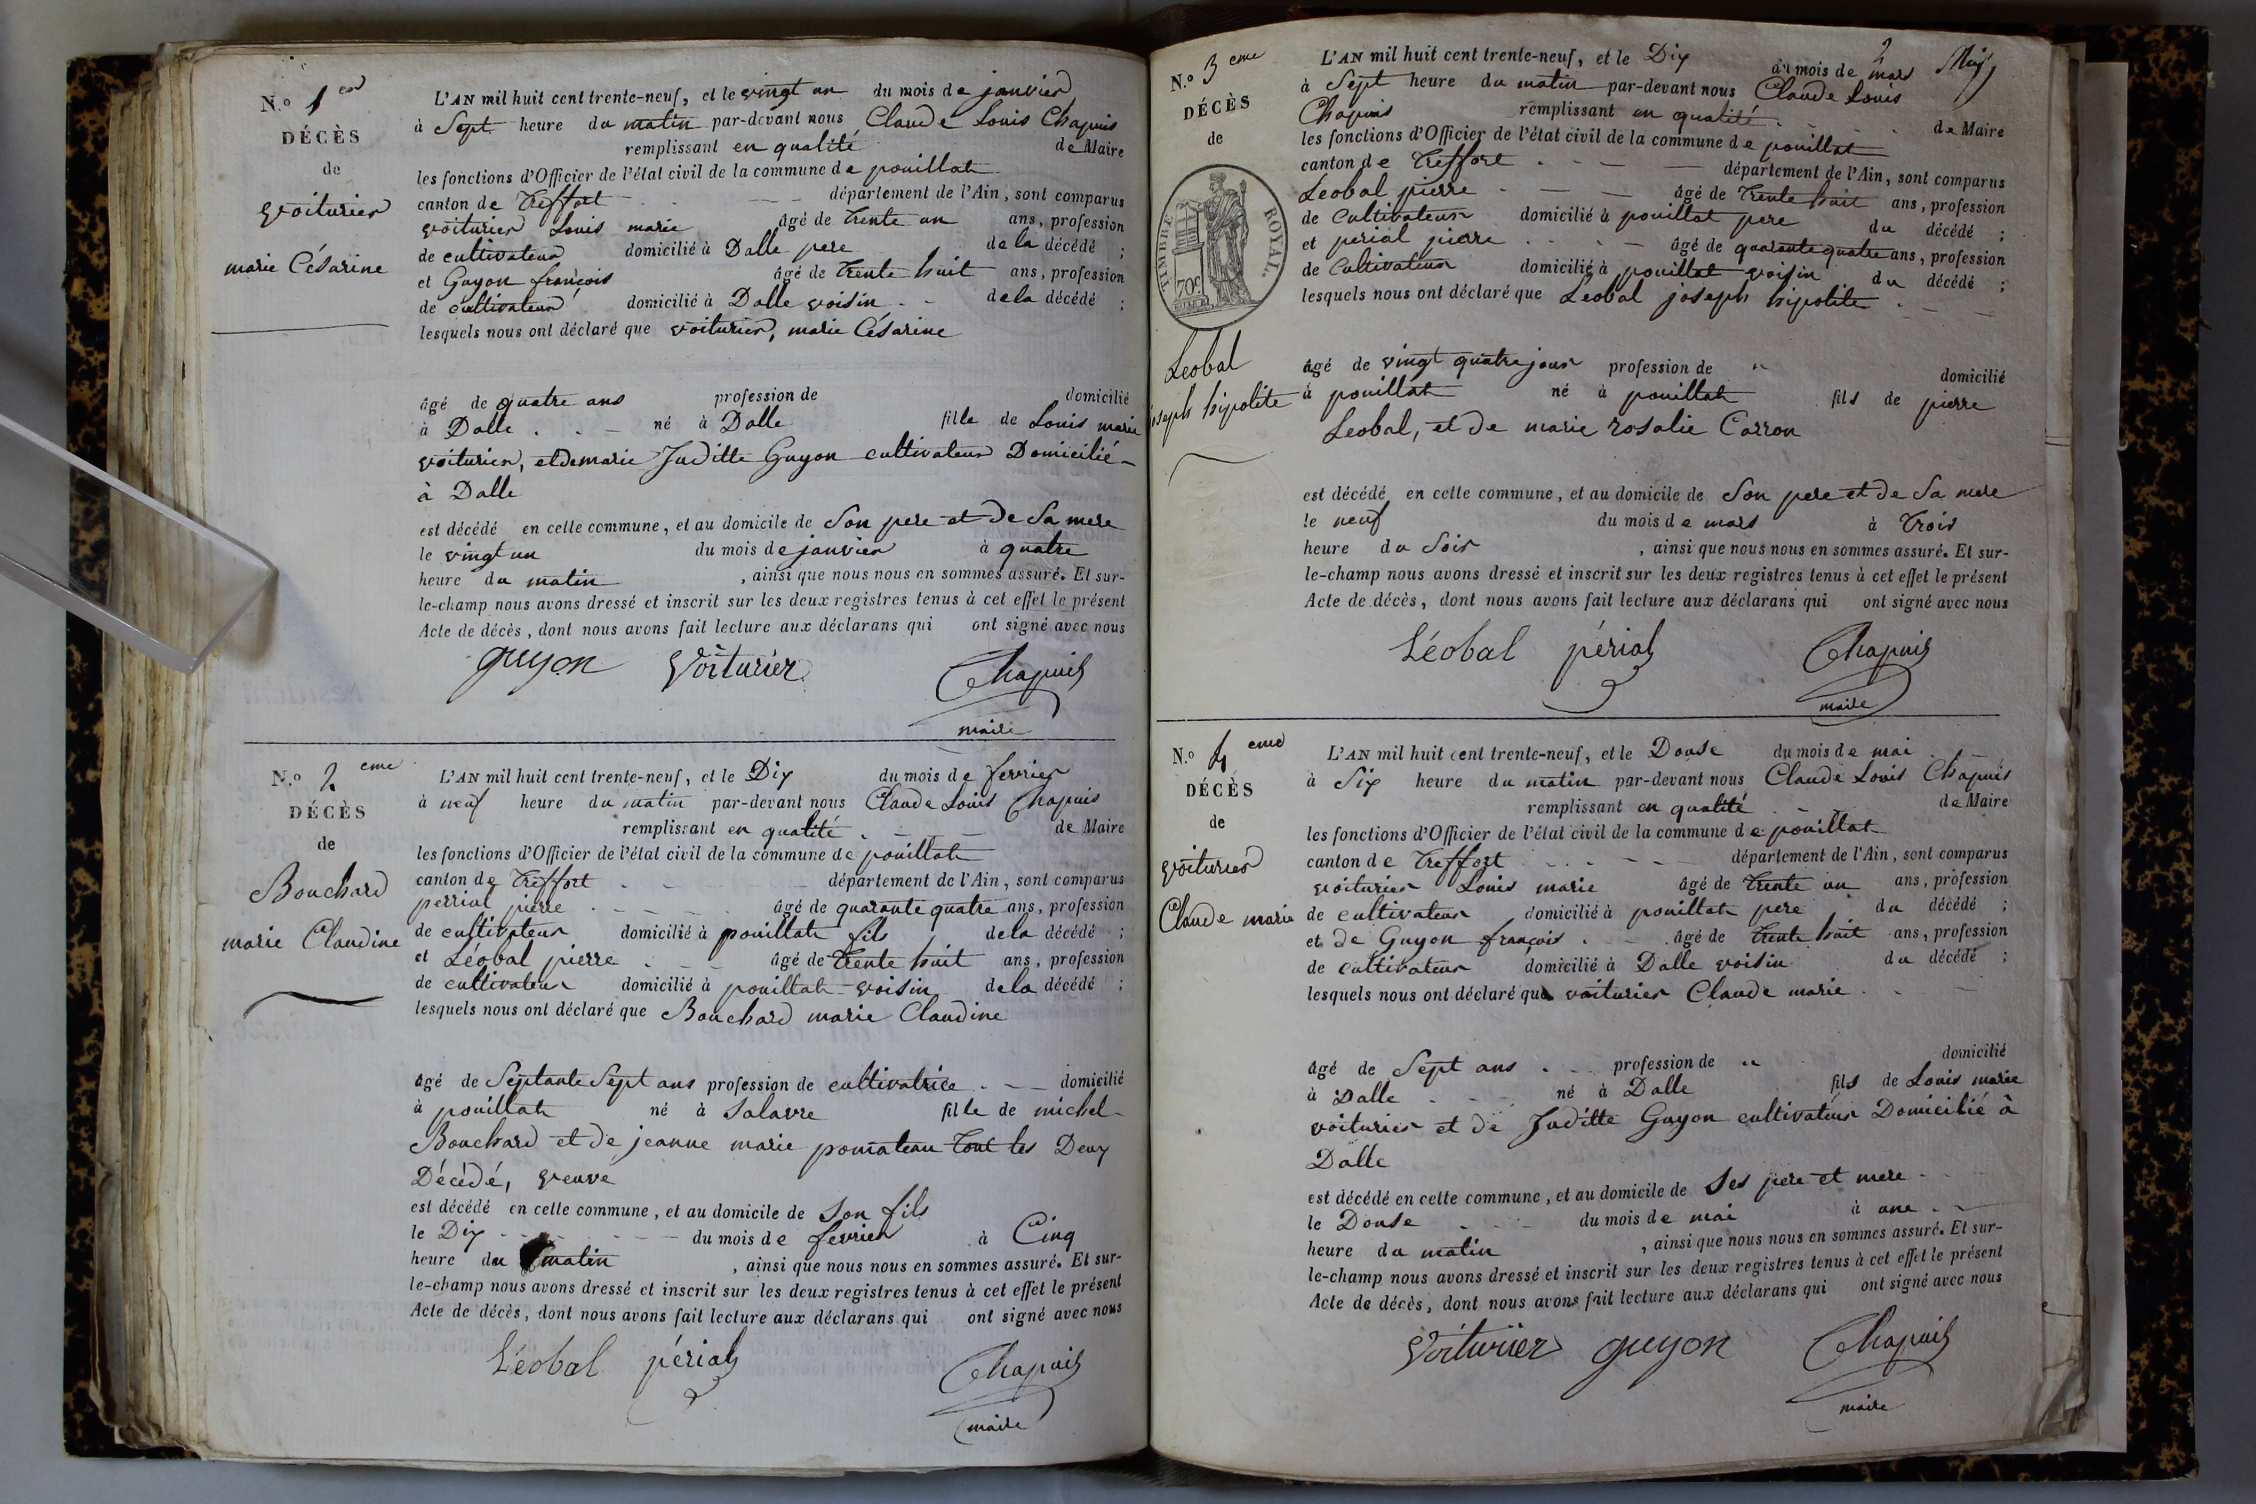 N.º 1er
DÉCÈS
de
voiturier
marie Césarine
L'AN mil huit cent trente-neuf, et le vingt un du mois de janvier
à Sept heure du matin par-devant nous Claude Louis Chapuis
remplissant en qualité de Maire
les fonctions d'Officier de l'état civil de la commune de pouillat
canton de Treffort département de l'Ain, sont comparus
voiturier Louis marie âgé de trente un ans, profession
de cultivateur domicilié à Dalle pere de la décédé ;
et Guyon françois âgé de trente huit ans, profession
de cultivateur domicilié à Dalle voisin de la décédé ;
lesquels nous ont déclaré que voiturier, marie Césarine
âgé de quatre ans profession de domicilié
à Dalle né à Dalle fille de Louis marie
voiturier, et de marie Juditte Guyon cultivateur Domicilié
à Dalle
est décédé en cette commune, et au domicile de Son pere et de Sa mere
le vingt un du mois de janvier à quatre
heure du matin , ainsi que nous nous en sommes assuré. Et sur-
le-champ nous avons dressé et inscrit sur les deux registres tenus à cet effet le présent
Acte de décès, dont nous avons fait lecture aux déclarans qui ont signé avec nous
guyon voiturier Chapuis
maire
N.º 2eme
DÉCÈS
de
Bouchard
marie Claudine
L'AN mil huit cent trente-neuf, et le Dix du mois de fevrier
à neuf heure du matin par-devant nous Claude Louis Chapuis
remplissant en qualité de Maire
les fonctions d'Officier de l'état civil de la commune de pouillat
canton de Treffort département de l'Ain, sont comparus
perrial pierre âgé de quarante quatre ans, profession
de cultivateur domicilié à pouillat fils de la décédé ;
et Léobal pierre âgé de trente huit ans, profession
de cultivateur domicilié à pouillat voisin de la décédé ;
lesquels nous ont déclaré que Bouchard marie Claudine
âgé de Septante Sept ans profession de cultivatrice domicilié
à pouillat né à Salavre fille de michel
Bouchard et de jeanne marie pomateau tout les Deux
Décédé, veuve
est décédé en cette commune, et au domicile de Son fils
le Dix du mois de fevrier à Cinq
heure du matin , ainsi que nous nous en sommes assuré. Et sur-
le-champ nous avons dressé et inscrit sur les deux registres tenus à cet effet le présent
Acte de décès, dont nous avons fait lecture aux déclarans qui ont signé avec nous
Léobal périal Chapuis
maire
N.º 3eme
DÉCÈS
de
TIMBRE ROYAL
70c
Leobal
joseph hipolite
L'AN mil huit cent trente-neuf, et le Dix du mois de mars
à Sept heure du matin par-devant nous Claude Louis
Chapuis remplissant en qualité de Maire
les fonctions d'Officier de l'état civil de la commune de pouillat
canton de Treffort département de l'Ain, sont comparus
Leobal pierre âgé de trente huit ans, profession
de Cultivateur domicilié à pouillat pere du décédé ;
et perial pierre âgé de quarante quatre ans, profession
de Cultivateur domicilié à pouillat voisin du décédé ;
lesquels nous ont déclaré que Leobal joseph hipolite
âgé de vingt quatre jour profession de "
domicilié
à pouillat né à pouillat fils de pierre
Leobal, et de marie rosalie Carron
est décédé en cette commune, et au domicile de Son pere et de Sa mere
le neuf du mois de mars à trois
heure du Soir , ainsi que nous nous en sommes assuré. Et sur-
le-champ nous avons dressé et inscrit sur les deux registres tenus à cet effet le présent
Acte de décès, dont nous avons fait lecture aux déclarans qui ont signé avec nous
Léobal périal Chapuis
maire
N.º 4eme
DÉCÈS
de
voiturier
Claude marie
L'AN mil huit cent trente-neuf, et le Douse du mois de mai
à Six heure du matin par-devant nous Claude Louis Chapuis
remplissant en qualité de Maire
les fonctions d'Officier de l'état civil de la commune de pouillat
canton de Treffort département de l'Ain, sont comparus
voiturier Louis marie âgé de trente un ans, profession
de cultivateur domicilié à pouillat pere du décédé ;
et de Guyon françois âgé de trente huit ans, profession
de cultivateur domicilié à Dalle voisin du décédé ;
lesquels nous ont déclaré que voiturier Claude marie
âgé de Sept ans profession de " domicilié
à Dalle né à Dalle fils de Louis marie
voiturier et de Juditte Guyon cultivateur Domicilié à
Dalle
est décédé en cette commune, et au domicile de Ses pere et mere
le Douse du mois de mai à une
heure du matin , ainsi que nous nous en sommes assuré. Et sur-
le-champ nous avons dressé et inscrit sur les deux registres tenus à cet effet le présent
Acte de décès, dont nous avons fait lecture aux déclarans qui ont signé avec nous
voiturier guyon Chapuis
maire